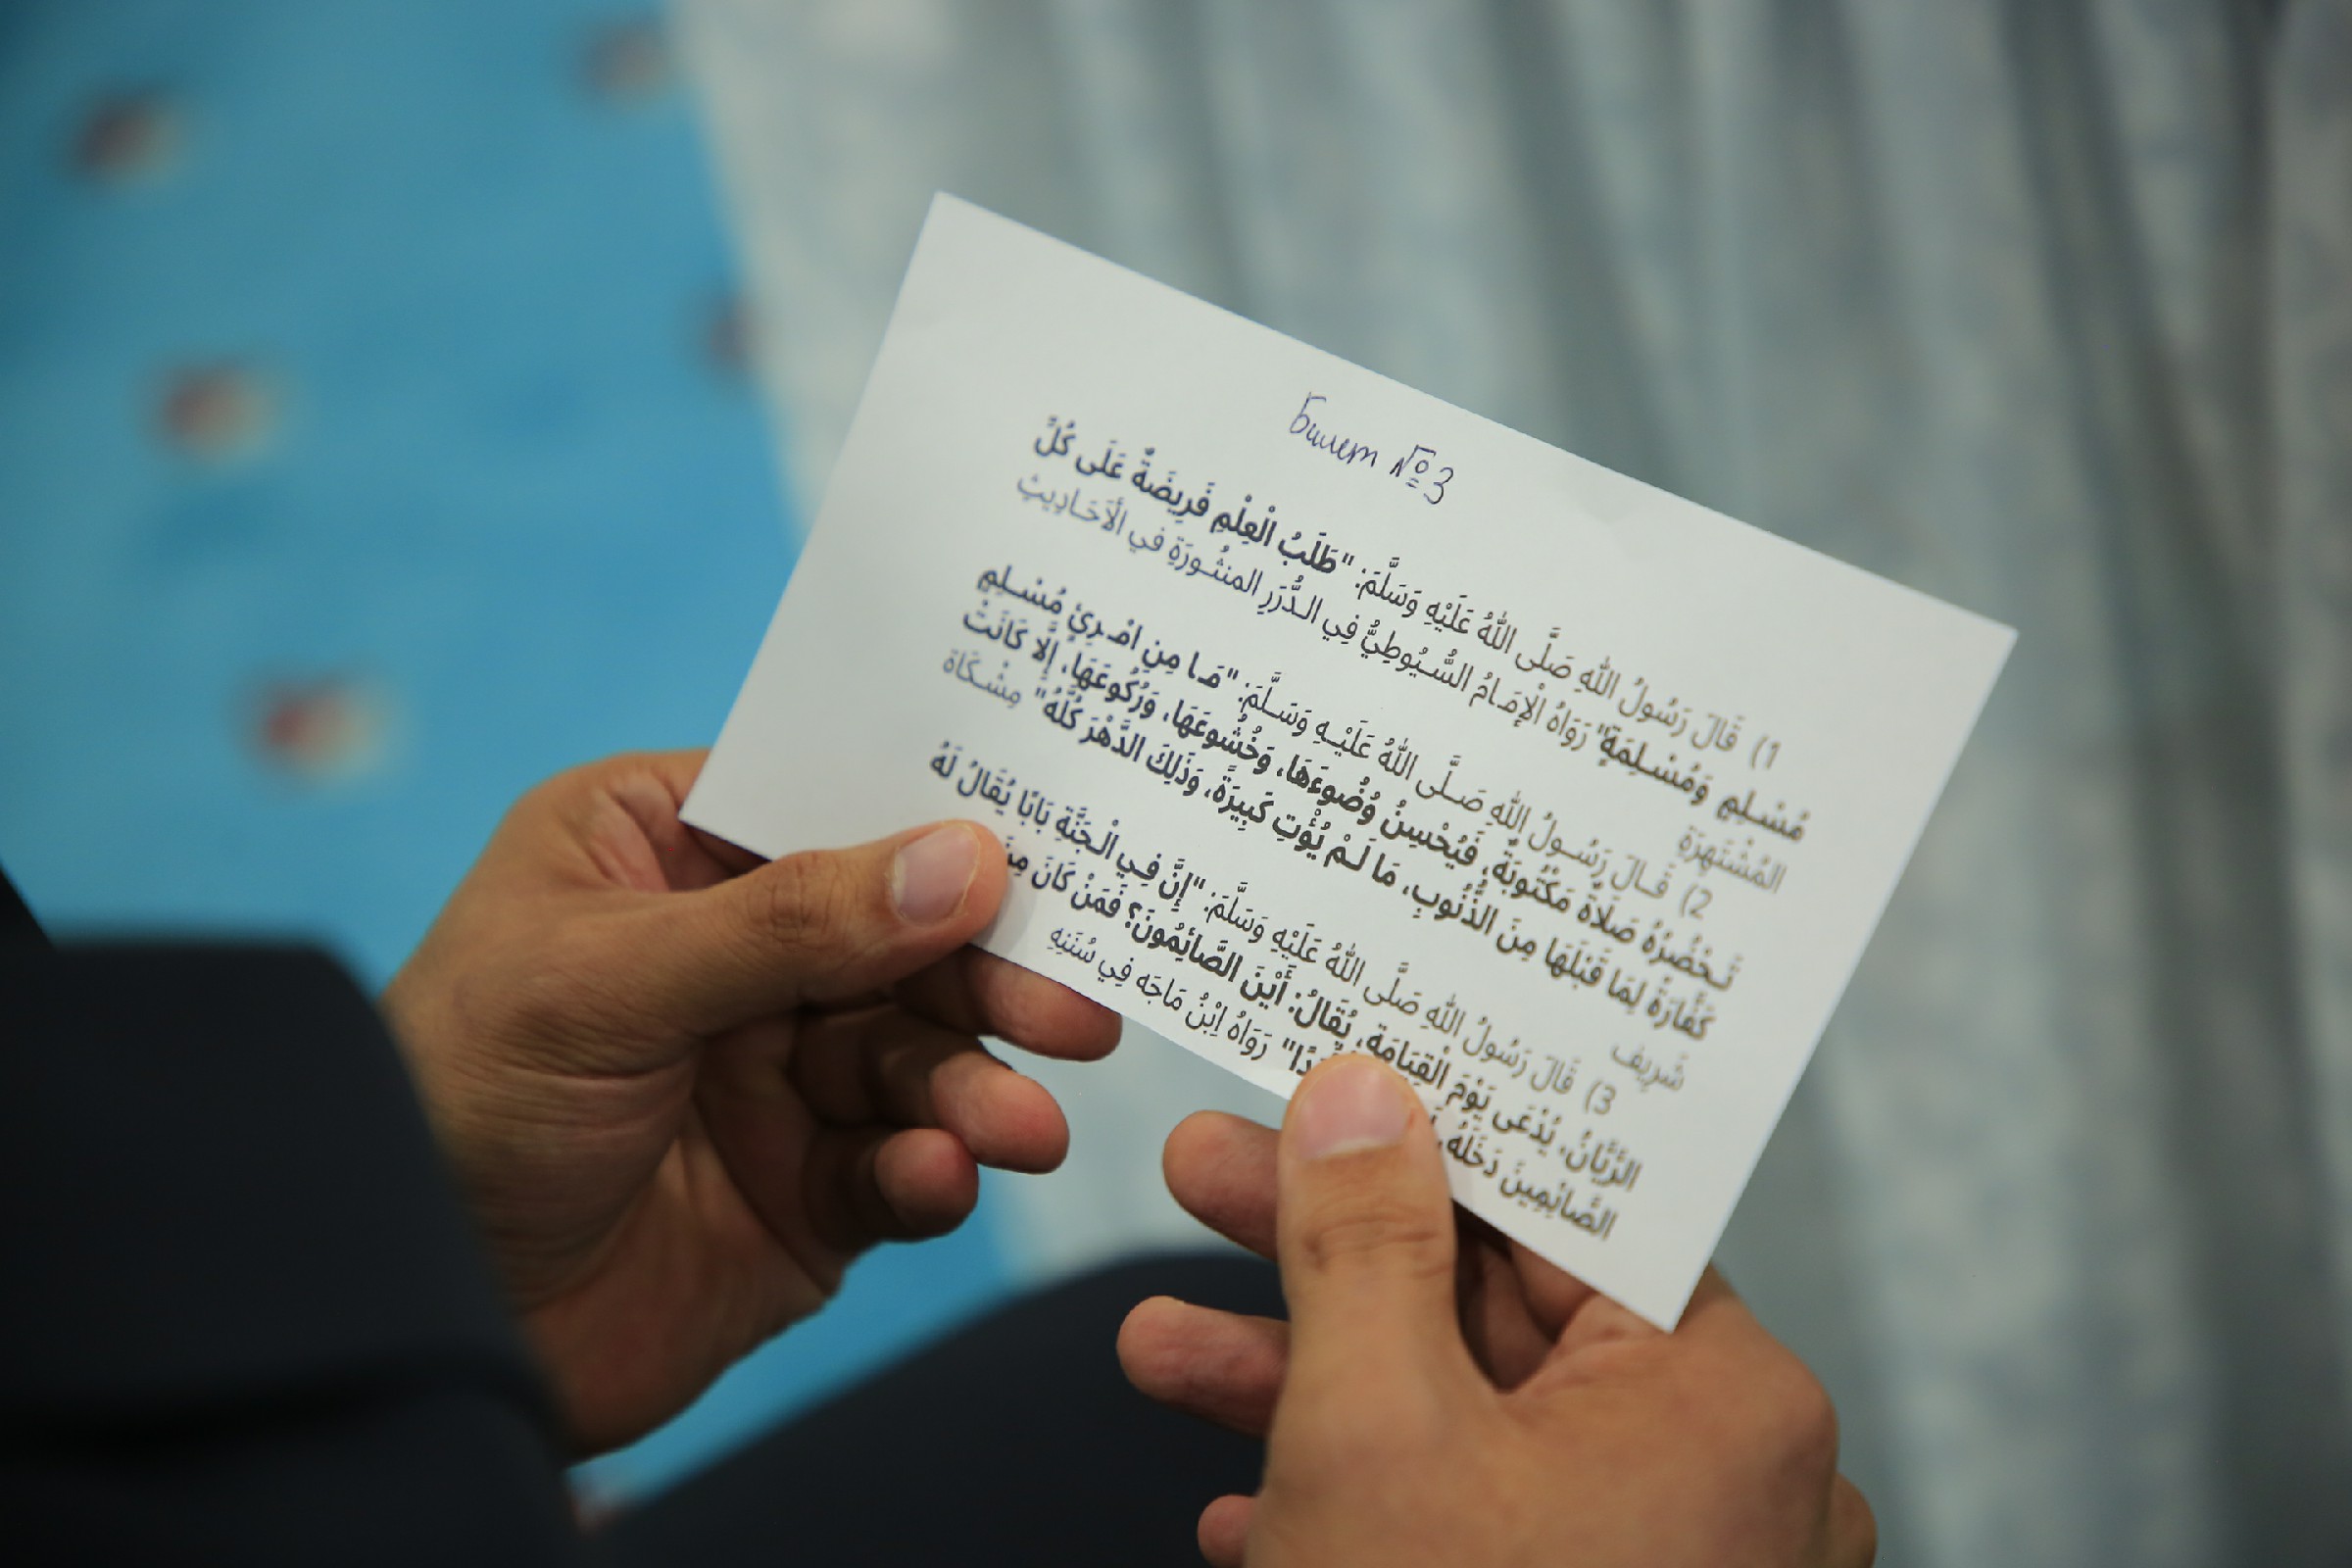 Билет №3
1) قَالَ رَسُولُ اللهِ صَلَّى اللهُ عَلَيْهِ وَسَلَّمَ: "طَلَبُ الْعِلْمِ فَرِيضَةٌ عَلَى كُلِّ
مُسْلِمٍ وَمُسْلِمَةٍ" رَوَاهُ الْإِمَامُ السُّيُوطِيُّ فِي الدُّرَرِ المنثُورَةِ في الْأَحَادِيثِ
المُشْتَهِرَةِ
2) قَالَ رَسُولُ اللهِ صَلَّى اللهُ عَلَيْهِ وَسَلَّمَ: "مَا مِن امْرِئٍ مُسْلِمٍ
تَحْضُرُهُ صَلَاةٌ مَكْتُوبَةٌ، فَيُحْسِنُ وُضُوءَهَا، وَخُشُوعَهَا، وَرُكُوعَهَا، إِلَّا كَانَتْ
كَفَّارَةً لِمَا قَبْلَهَا مِنَ الذُّنُوبِ، مَا لَمْ يُؤْتِ كَبِيرَةً، وَذَلِكَ الدَّهْرَ كُلَّهُ" مِشْكَاة
شَرِيف
3) قَالَ رَسُولُ اللهِ صَلَّى اللهُ عَلَيْهِ وَسَلَّمَ: "إِنَّ فِي الْجَنَّةِ بَابًا يُقَالُ لَهُ
الرَّيَّانُ، يُدْعَى يَوْمَ الْقِيَامَةِ، يُقَالُ: أَيْنَ الصَّائِمُونَ؟ فَمَنْ كَانَ مِنَ
الصَّائِمِينَ دَخَلَهُ، رَوَاهُ اِبْنُ مَاجَه فِي سُنَنِهِ